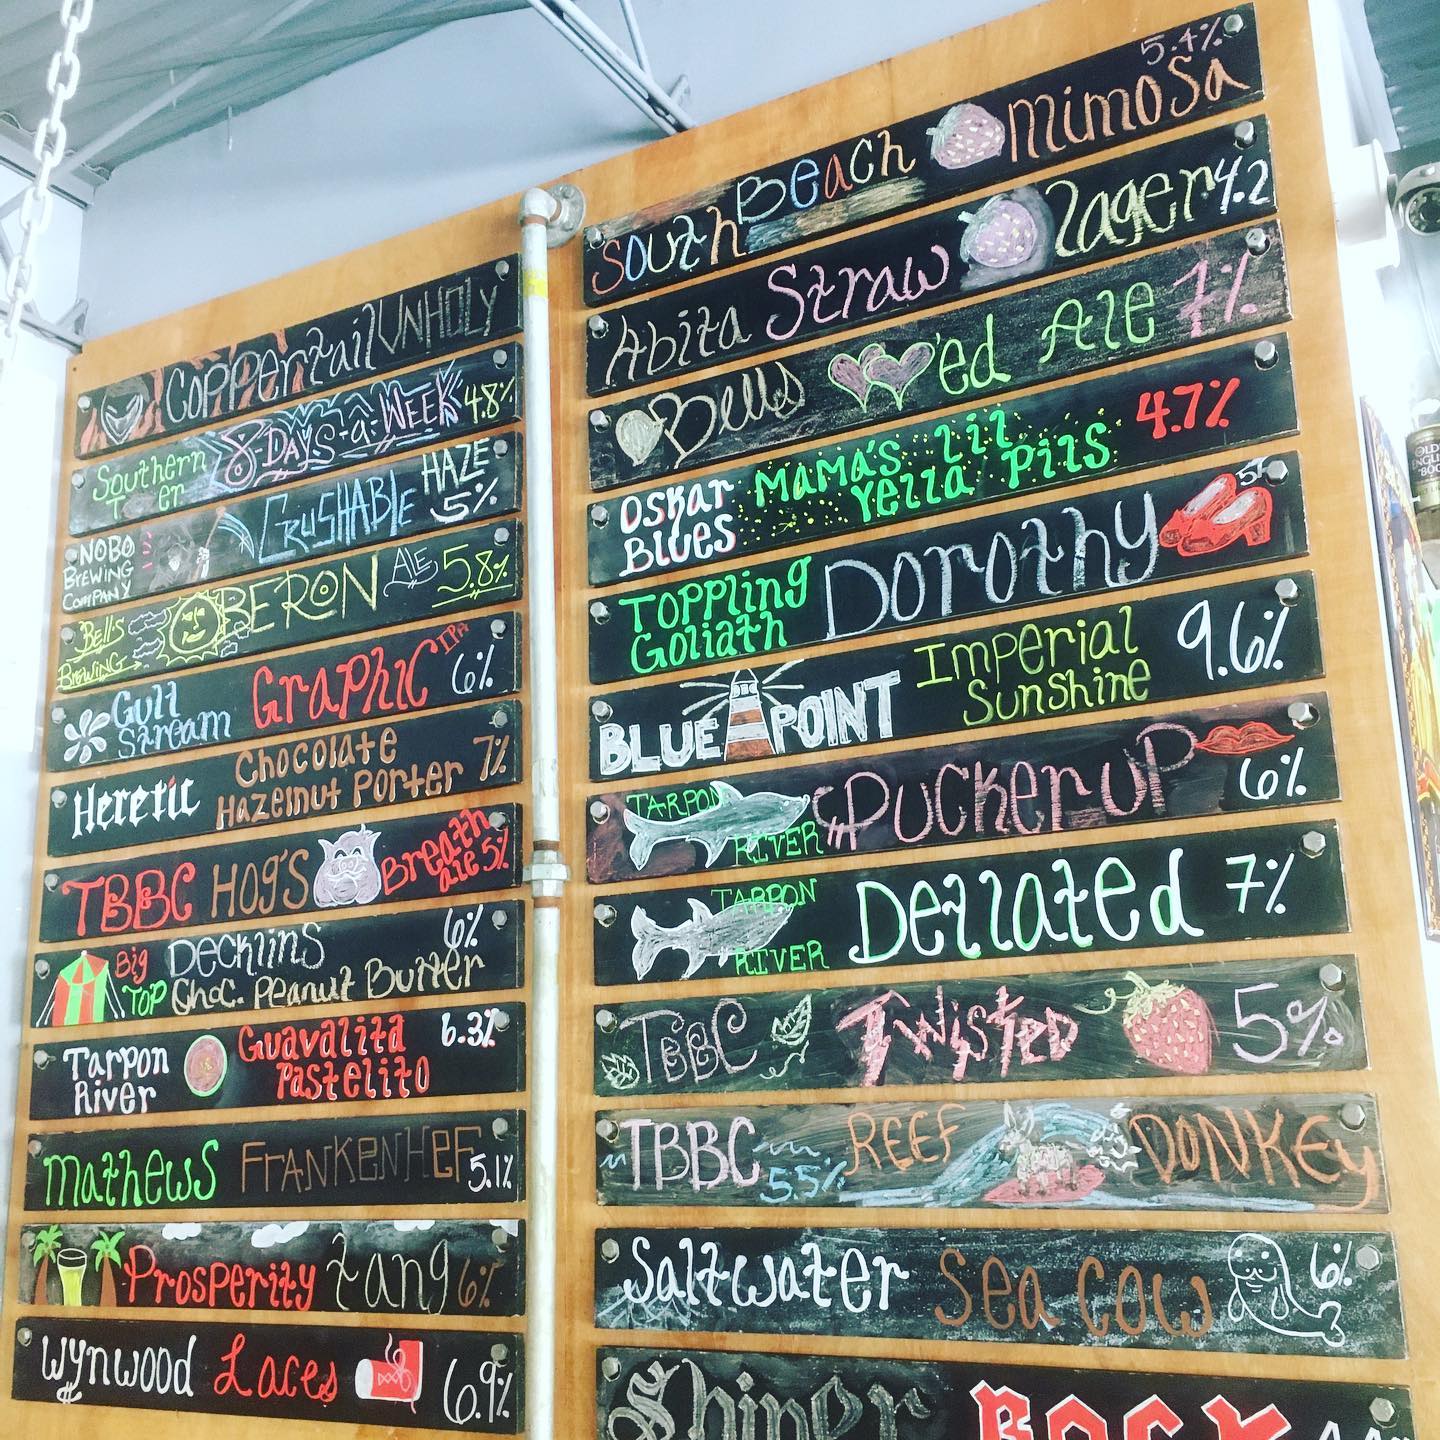 Coppertail UNHOLY
Southern 8-DAYS-a-WEEK 4.8%
NOBO BREWING COMPANY CRUSHABLE HAZE 5%
BELLS BREWING OBERON ALE 5.8%
Gulf Stream GRAPHIC IPA 6%
Heretic Chocolate Hazelnut Porter 7%
TBBC HOG'S Breath ale 5%
Big Top Decklins Choc. Peanut Butter 6%
Tarpon River Guavalita Pastelito 6.3%
Mathews FRANKENHEF 5.1%
Prosperity tang 6%
Wynwood Laces 6.9%
South Beach Mimosa 5.4%
Abita Straw lager 4.2
Bells 'ed Ale 7%
Oskar Blues Mama's Lil Yella Pils 4.7%
Toppling Goliath Dorothy
BLUE POINT Imperial Sunshine 9.6%
TARPON RIVER PUCKER UP 6%
TARPON RIVER Dezzated 7%
TBBC Twisted 5%
TBBC 5.5% REEF DONKEY
Saltwater Sea Cow 6%
Shiner BOCK
OLD ENGLISH "800"